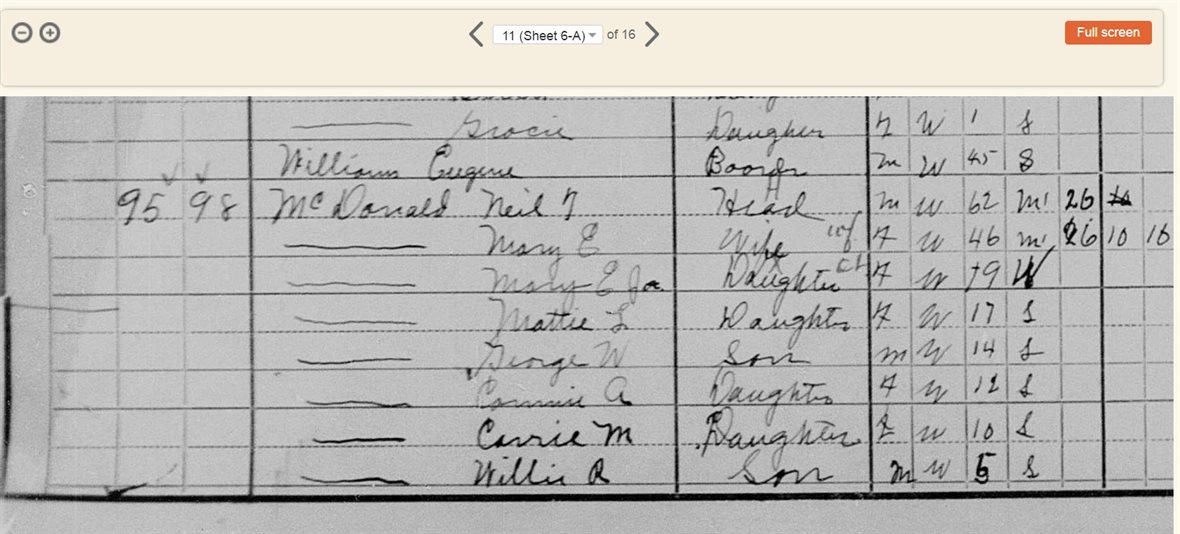 11 (Sheet 6-A) of 16
Full screen
Gracie Daughter F W 1 S
Williams Eugene Boarder m W 45 S
95 98 McDonald Neil T Head m W 62 m1 26
Mary E Wife F W 46 m1 26 10 10
Mary E Jr. Daughter F W 19 W
Mattie L Daughter F W 17 S
George W Son m W 14 S
Connie A Daughter F W 12 S
Carrie M Daughter F W 10 S
Willie R Son m W 5 S